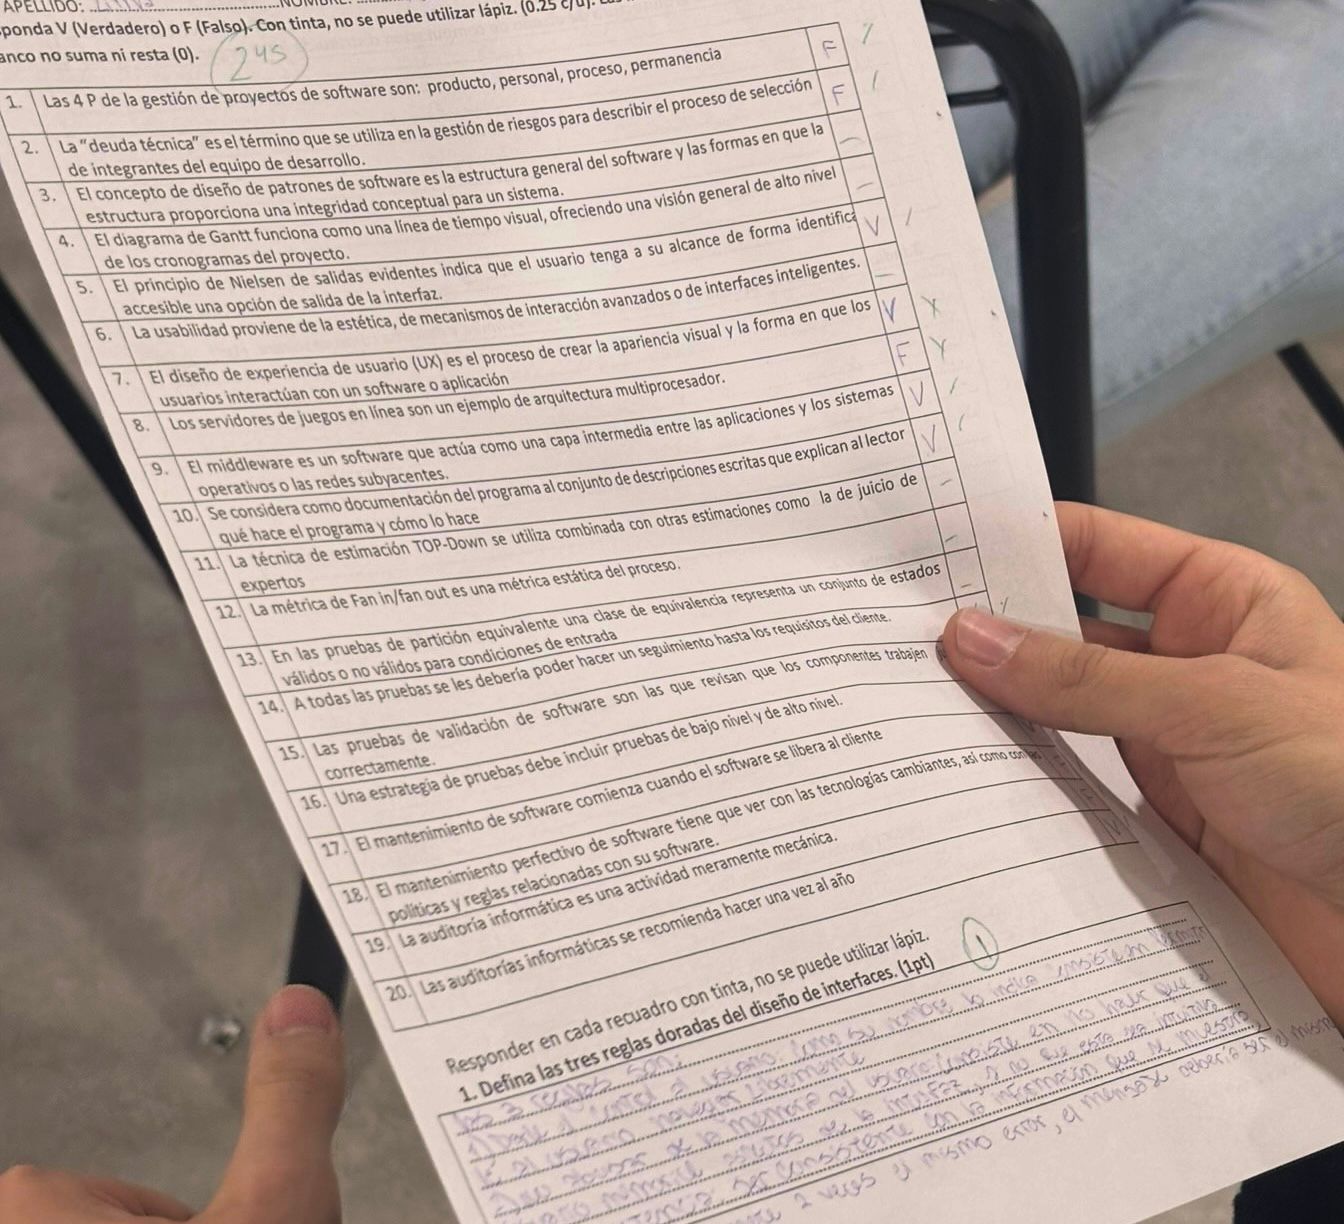 APELLIDO:
ponda V (Verdadero) o F (Falso). Con tinta, no se puede utilizar lápiz. (0.25 c/u).
anco no suma ni resta (0). 245
1. Las 4 P de la gestión de proyectos de software son: producto, personal, proceso, permanencia F
2. La "deuda técnica" es el término que se utiliza en la gestión de riesgos para describir el proceso de selección F
de integrantes del equipo de desarrollo.
3. El concepto de diseño de patrones de software es la estructura general del software y las formas en que la
estructura proporciona una integridad conceptual para un sistema.
4. El diagrama de Gantt funciona como una línea de tiempo visual, ofreciendo una visión general de alto nivel
de los cronogramas del proyecto.
5. El principio de Nielsen de salidas evidentes indica que el usuario tenga a su alcance de forma identifica V
accesible una opción de salida de la interfaz.
6. La usabilidad proviene de la estética, de mecanismos de interacción avanzados o de interfaces inteligentes.
7. El diseño de experiencia de usuario (UX) es el proceso de crear la apariencia visual y la forma en que los V
usuarios interactúan con un software o aplicación
8. Los servidores de juegos en línea son un ejemplo de arquitectura multiprocesador. F
9. El middleware es un software que actúa como una capa intermedia entre las aplicaciones y los sistemas V
operativos o las redes subyacentes.
10. Se considera como documentación del programa al conjunto de descripciones escritas que explican al lector V
qué hace el programa y cómo lo hace
11. La técnica de estimación TOP-Down se utiliza combinada con otras estimaciones como la de juicio de
expertos
12. La métrica de Fan in/fan out es una métrica estática del proceso.
13. En las pruebas de partición equivalente una clase de equivalencia representa un conjunto de estados
válidos o no válidos para condiciones de entrada
14. A todas las pruebas se les debería poder hacer un seguimiento hasta los requisitos del cliente.
15. Las pruebas de validación de software son las que revisan que los componentes trabajen
correctamente.
16. Una estrategia de pruebas debe incluir pruebas de bajo nivel y de alto nivel.
17. El mantenimiento de software comienza cuando el software se libera al cliente V
18. El mantenimiento perfectivo de software tiene que ver con las tecnologías cambiantes, así como con las F
políticas y reglas relacionadas con su software.
19. La auditoría informática es una actividad meramente mecánica. F
20. Las auditorías informáticas se recomienda hacer una vez al año V
Responder en cada recuadro con tinta, no se puede utilizar lápiz.
1. Defina las tres reglas doradas del diseño de interfaces. (1pt) 1
Las 3 reglas son:
1) Darle el control al usuario: como su nombre lo indica consiste en
el usuario navegar libremente
de la memoria del usuario: consiste en no hacer que el
de la interfaz, que esta sea intuitiva
consistente con la información que se muestra,
2 veces el mismo error, el mensaje debería ser el mismo